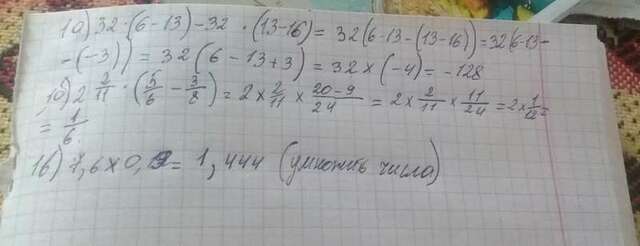 10) 32 · (6-13) - 32 · (13-16) = 32(6-13-(13-16)) = 32(6-13-
-(-3)) = 32(6-13+3) = 32×(-4) = -128
10) 2 2/11 · (5/6 - 3/8) = 2 × 2/11 × (20-9)/24 = 2 × 2/11 × 11/24 = 2 × 1/12 =
= 1/6
16) 7,6 × 0,19 = 1,444 (умножить числа)